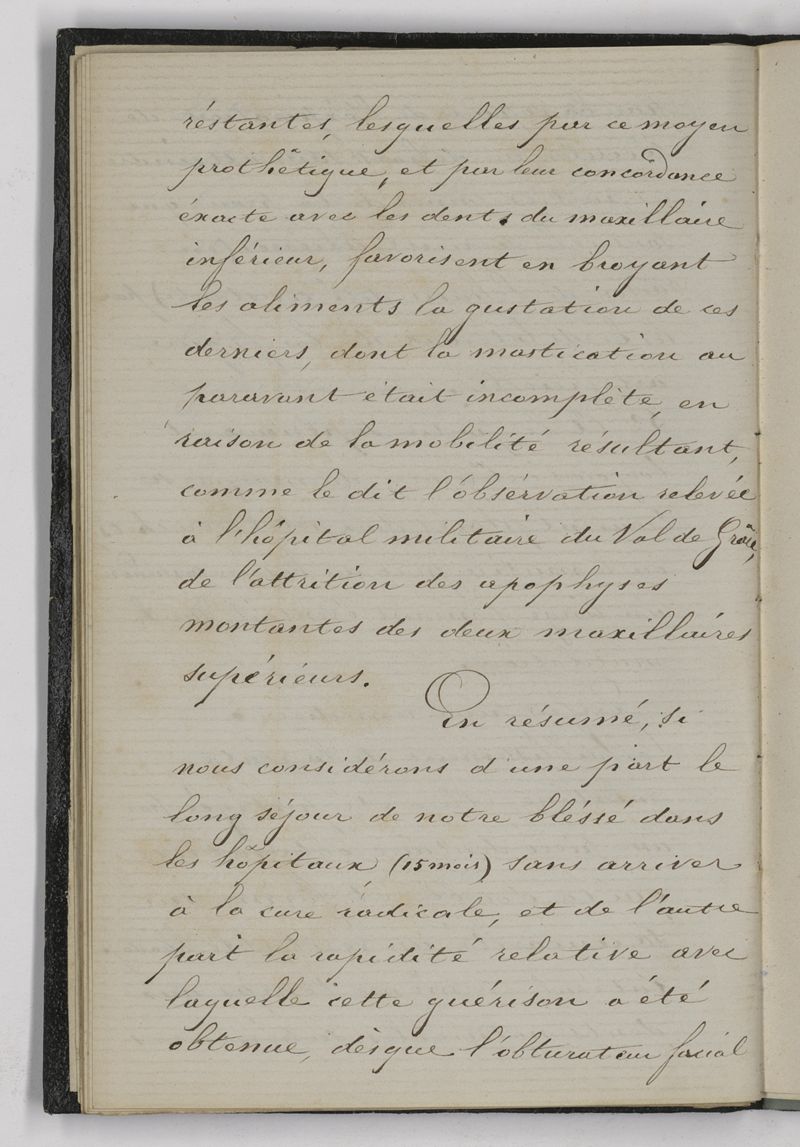 réstantes, lesquelles par ce moyen
prothétique, et par leur concordance
éxacte avec les dents du maxillaire
inférieur, favorisent en broyant
les aliments la gustation de ces
derniers, dont la mastication au
paravant était incomplète, en
raison de la mobilité résultant,
comme le dit l'obsérvation relevée
à l'hôpital militaire du Val de Grâce,
de l'attrition des apophyses
montantes des deux maxillaires
supérieurs.
En résumé, si
nous considérons d'une part le
long séjour de notre bléssé dans
les hôpitaux (15 mois) sans arriver
à la cure radicale, et de l'autre
part la rapidité relative avec
laquelle cette guérison a été
obtenue, dès que l'obturateur facial